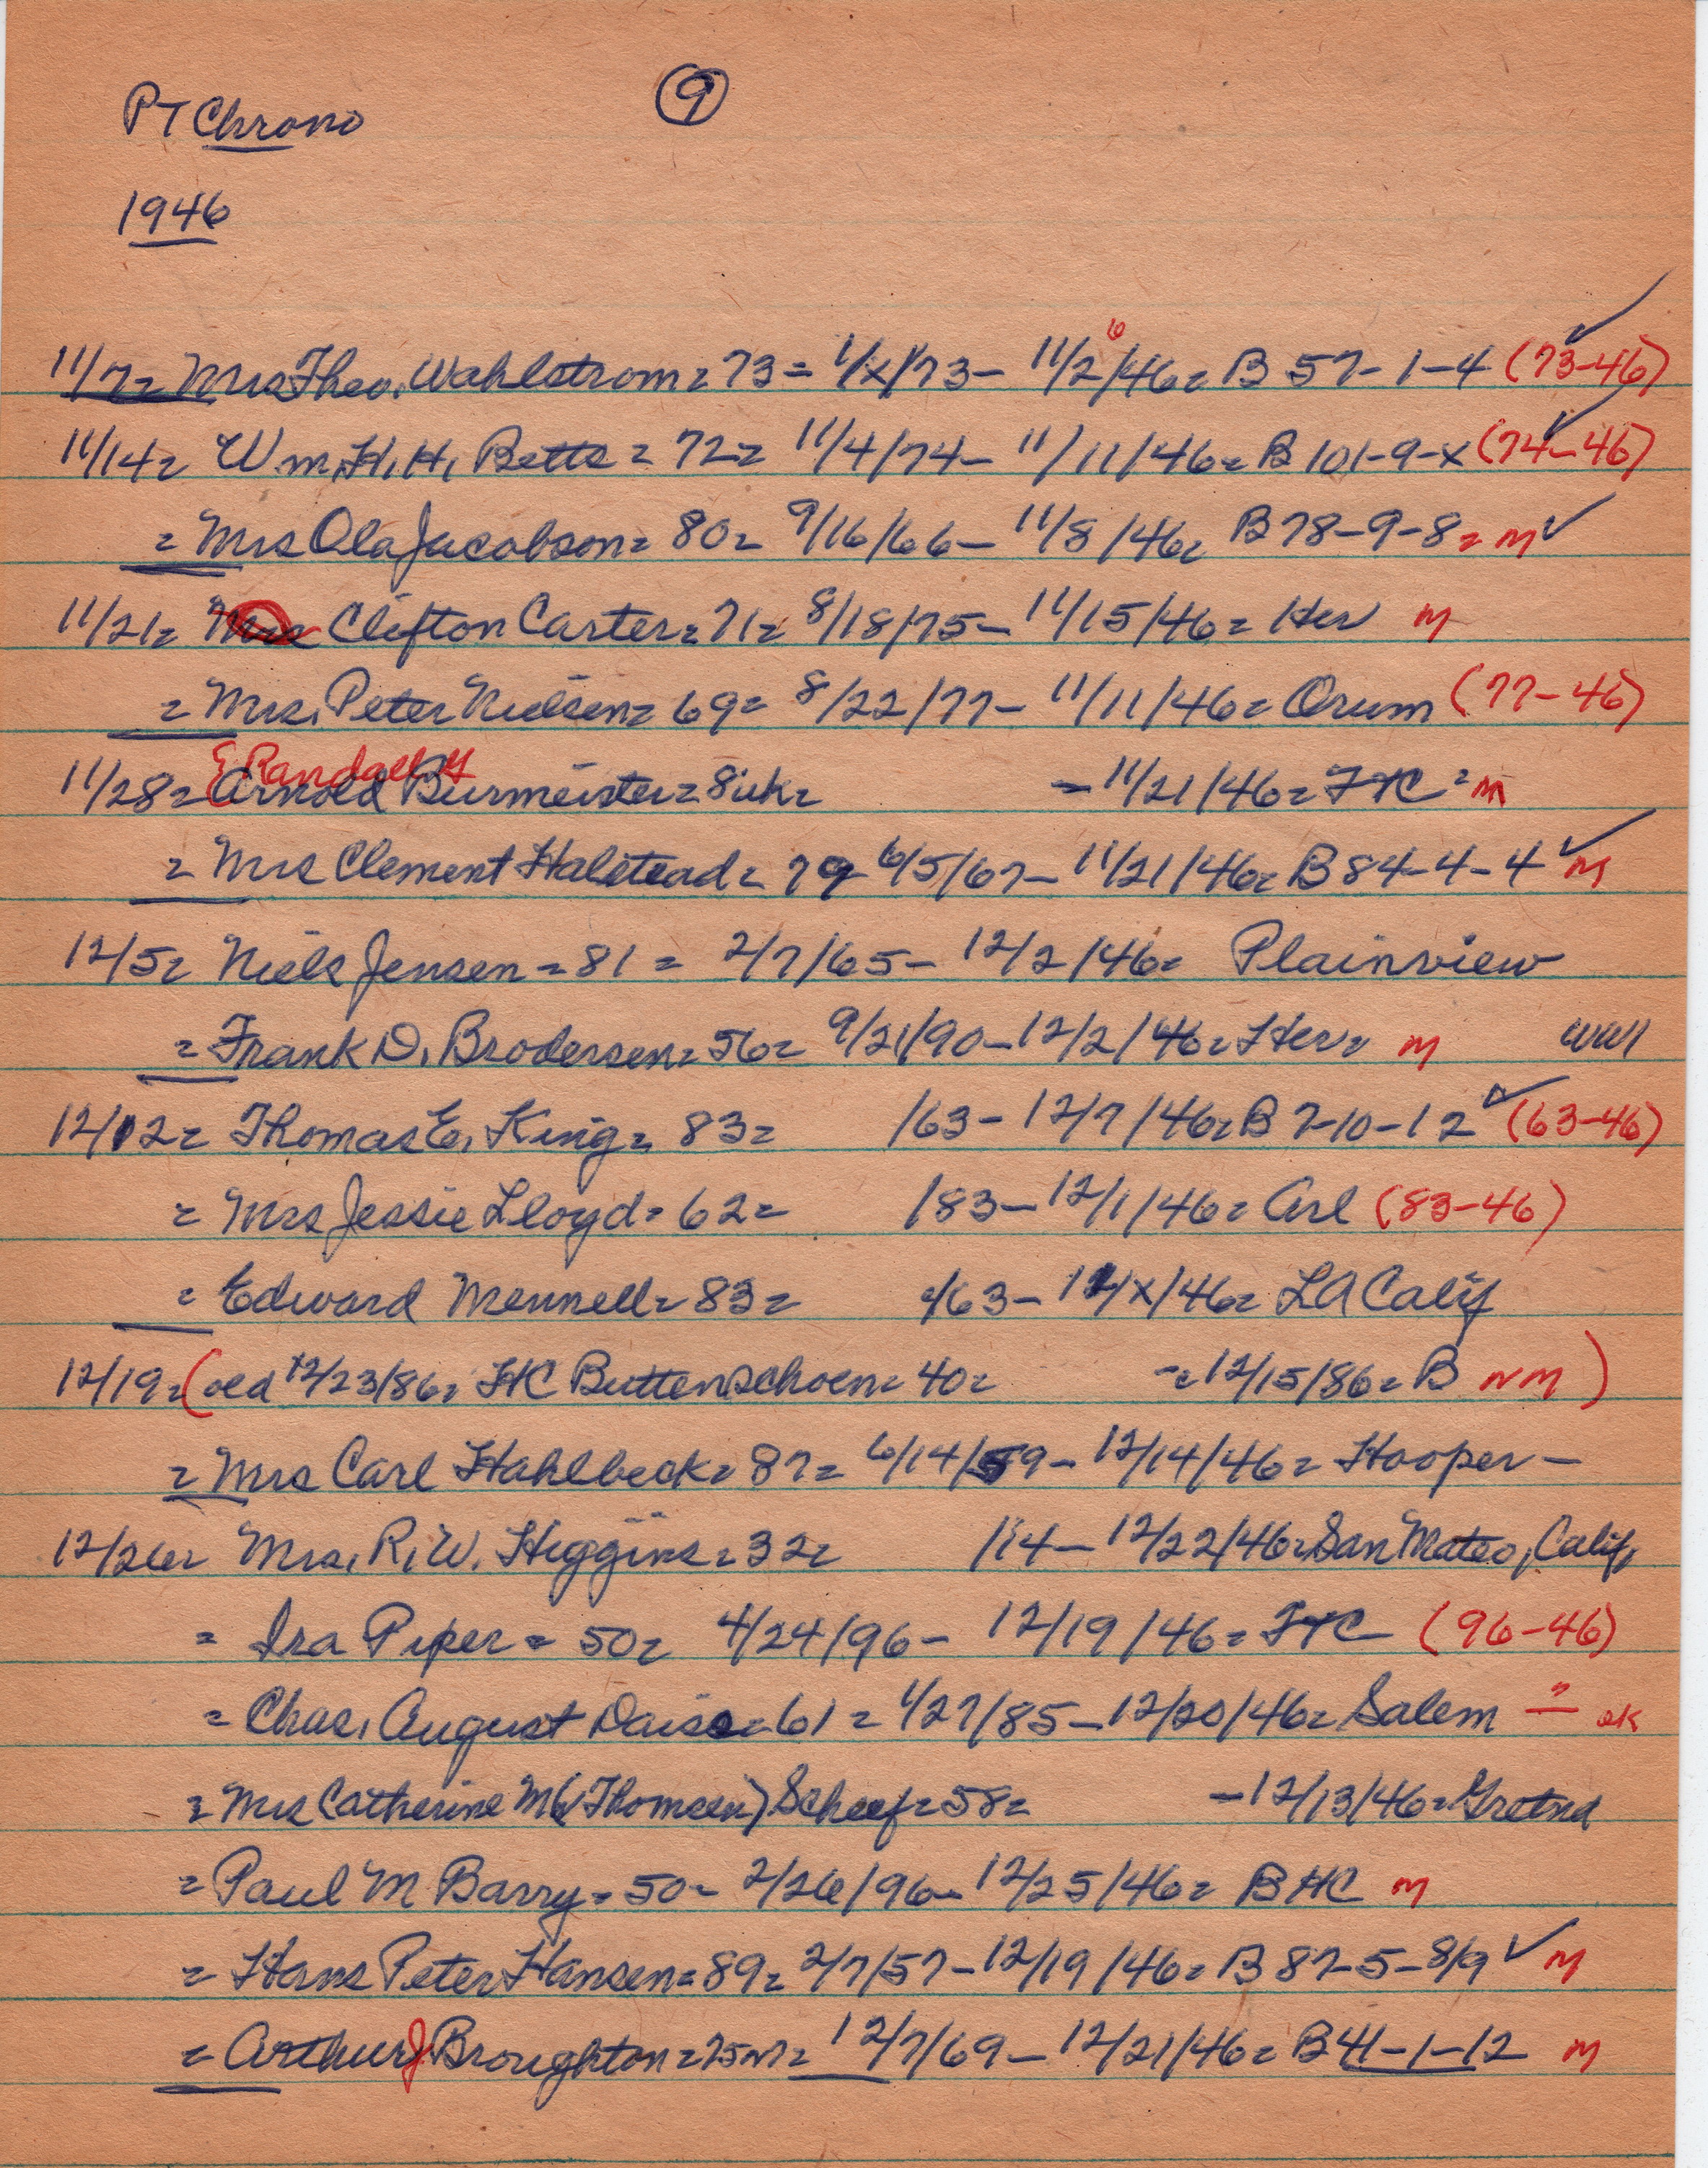 PT Chrono ⑨
1946
11/7= Mrs Theo. Wahlstrom= 73= 1/x/73- 11/2/46= B 57-1-4 (73-46) ✓
6
11/14= Wm. H. H. Betts= 72= 11/4/74- 11/11/46= B 101-9-x (74-46) ✓
= Mrs Ola Jacobson= 80= 9/16/66- 11/8/46= B 78-9-8= M ✓
11/21= Clifton Carter= 71= 8/18/75- 11/15/46= Her M
= Mrs. Peter Nielsen= 69= 8/22/77- 11/11/46= Orum (77-46)
& Randall H
11/28= Arnold Burmeister= 8 wk= -11/21/46= FTC= M
= Mrs Clement Halstead= 79 6/5/67- 11/21/46= B 84-4-4 ✓ M
12/5= Niels Jensen= 81= 2/7/65- 12/2/46= Plainview
= Frank D. Brodersen= 56= 9/21/90- 12/2/46= Her= M WWI
12/12= Thomas E. King= 83= /63- 12/7/46= B 7-10-12 ✓ (63-46)
= Mrs Jessie Lloyd= 62= /83- 12/1/46= Arl (83-46)
= Edward Mennell= 83= /63- 12/x/46= LA Calif
12/19= (oed 12/23/86= HC Buttenschoen= 40= -=12/15/86= B NM)
= Mrs Carl Hahlbeck= 87= 6/14/59- 12/14/46= Hooper-
12/26= Mrs. R. W. Higgins= 32= /14- 12/22/46= San Mateo, Calif.
= Ira Piper= 50= 4/24/96- 12/19/46= FTC (96-46)
= Chas. August Daiss= 61= 1/27/85- 12/20/46= Salem = ok
= Mrs Catherine M (Thomsen) Scheef= 58= -12/13/46= Gretna
= Paul M Barry= 50- 2/26/96- 12/25/46= BHC M
= Hans Peter Hansen= 89= 2/7/57- 12/19/46= B 87-5-8/9 ✓ M
= Arthur J Broughton= 12/7/69- 12/21/46= B 41-1-12 M